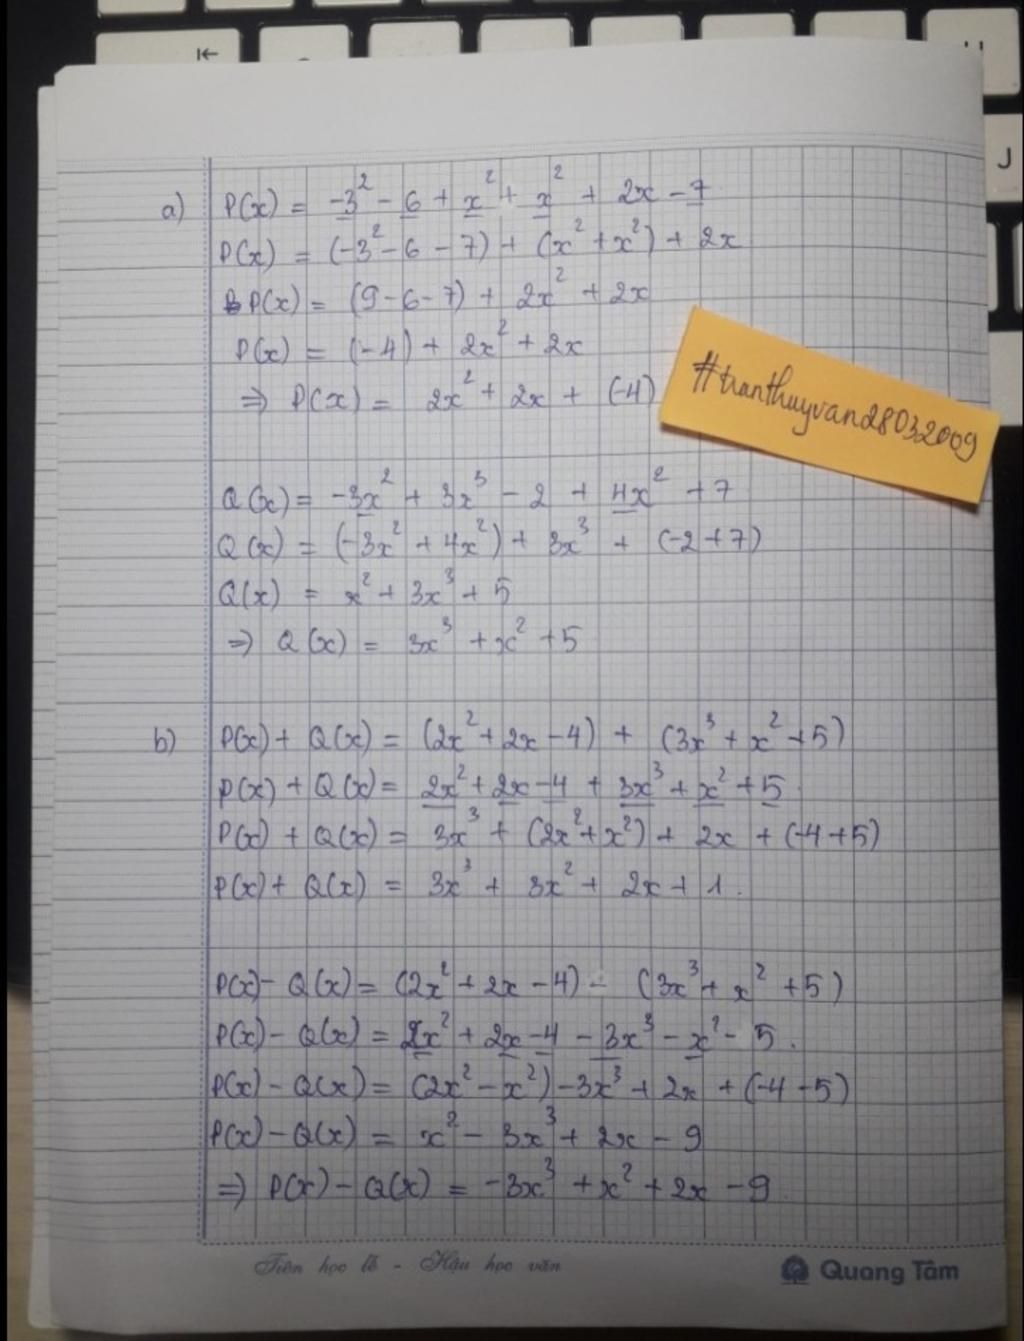 J
a) P(x) = -3² - 6 + x² + x² + 2x - 7
P(x) = (-3² - 6 - 7) + (x² + x²) + 2x
P(x) = (9 - 6 - 7) + 2x² + 2x
P(x) = (-4) + 2x² + 2x
⇒ P(x) = 2x² + 2x + (-4)
#tranthuyvan28032009
Q(x) = -3x² + 3x³ - 2 + 4x² + 7
Q(x) = (-3x² + 4x²) + 3x³ + (-2 + 7)
Q(x) = x² + 3x³ + 5
⇒ Q(x) = 3x³ + x² + 5
b) P(x) + Q(x) = (2x² + 2x - 4) + (3x³ + x² + 5)
P(x) + Q(x) = 2x² + 2x - 4 + 3x³ + x² + 5.
P(x) + Q(x) = 3x³ + (2x² + x²) + 2x + (-4 + 5)
P(x) + Q(x) = 3x³ + 3x² + 2x + 1.
P(x) - Q(x) = (2x² + 2x - 4) - (3x³ + x² + 5)
P(x) - Q(x) = 2x² + 2x - 4 - 3x³ - x² - 5.
P(x) - Q(x) = (2x² - x²) - 3x³ + 2x + (-4 - 5)
P(x) - Q(x) = x² - 3x³ + 2x - 9
⇒ P(x) - Q(x) = -3x³ + x² + 2x - 9
Tiên học lễ - Hậu học văn
Quang Tâm